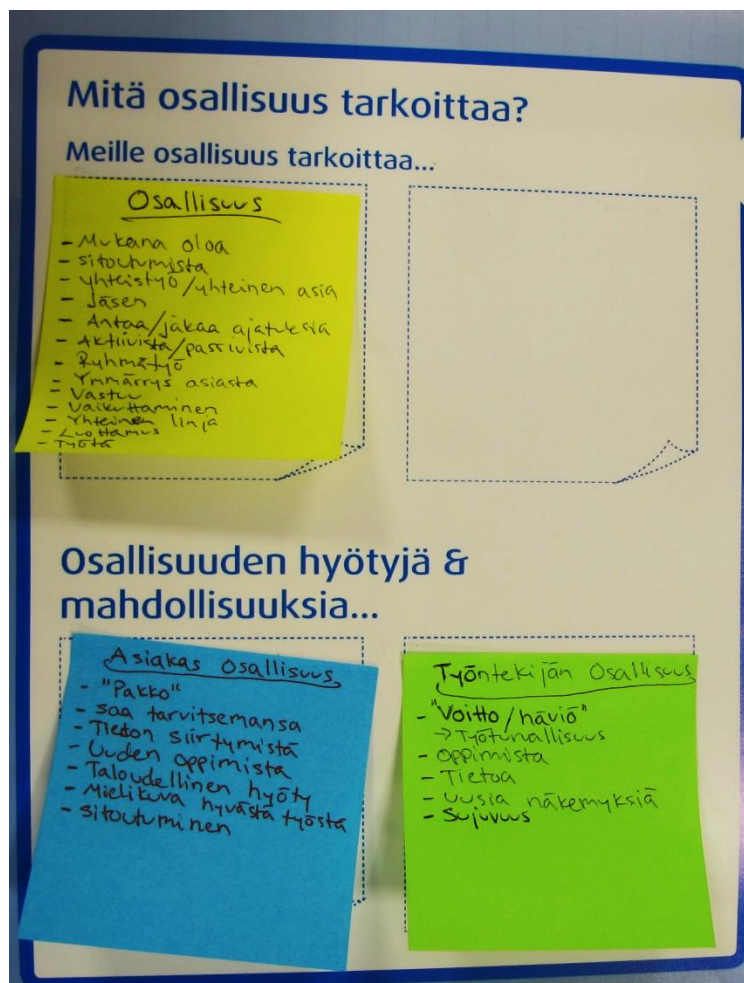 Mitä osallisuus tarkoittaa?
Meille osallisuus tarkoittaa...
Osallisuus
- Mukana oloa
- sitoutumista
- yhteistyö/yhteinen asia
- Jäsen
- Antaa/jakaa ajatuksia
- Aktiivista/passivista
- Ryhmätyö
- Ymmärrys asiasta
- Vastuu
- Vaikuttaminen
- Yhteinen linja
- Luottamus
- Työtä
Osallisuuden hyötyjä &
mahdollisuuksia...
Asiakas osallisuus
- "Pakko"
- saa tarvitsemansa
- Tiedon siirtymistä
- Uuden oppimista
- Taloudellinen hyöty
- Mielikuva hyvästä työstä
- sitoutuminen
Työntekijän Osallisuus
- "Voitto/häviö"
→ Työturvallisuus
- oppimista
- Tietoa
- uusia näkemyksiä
- Sujuvuus